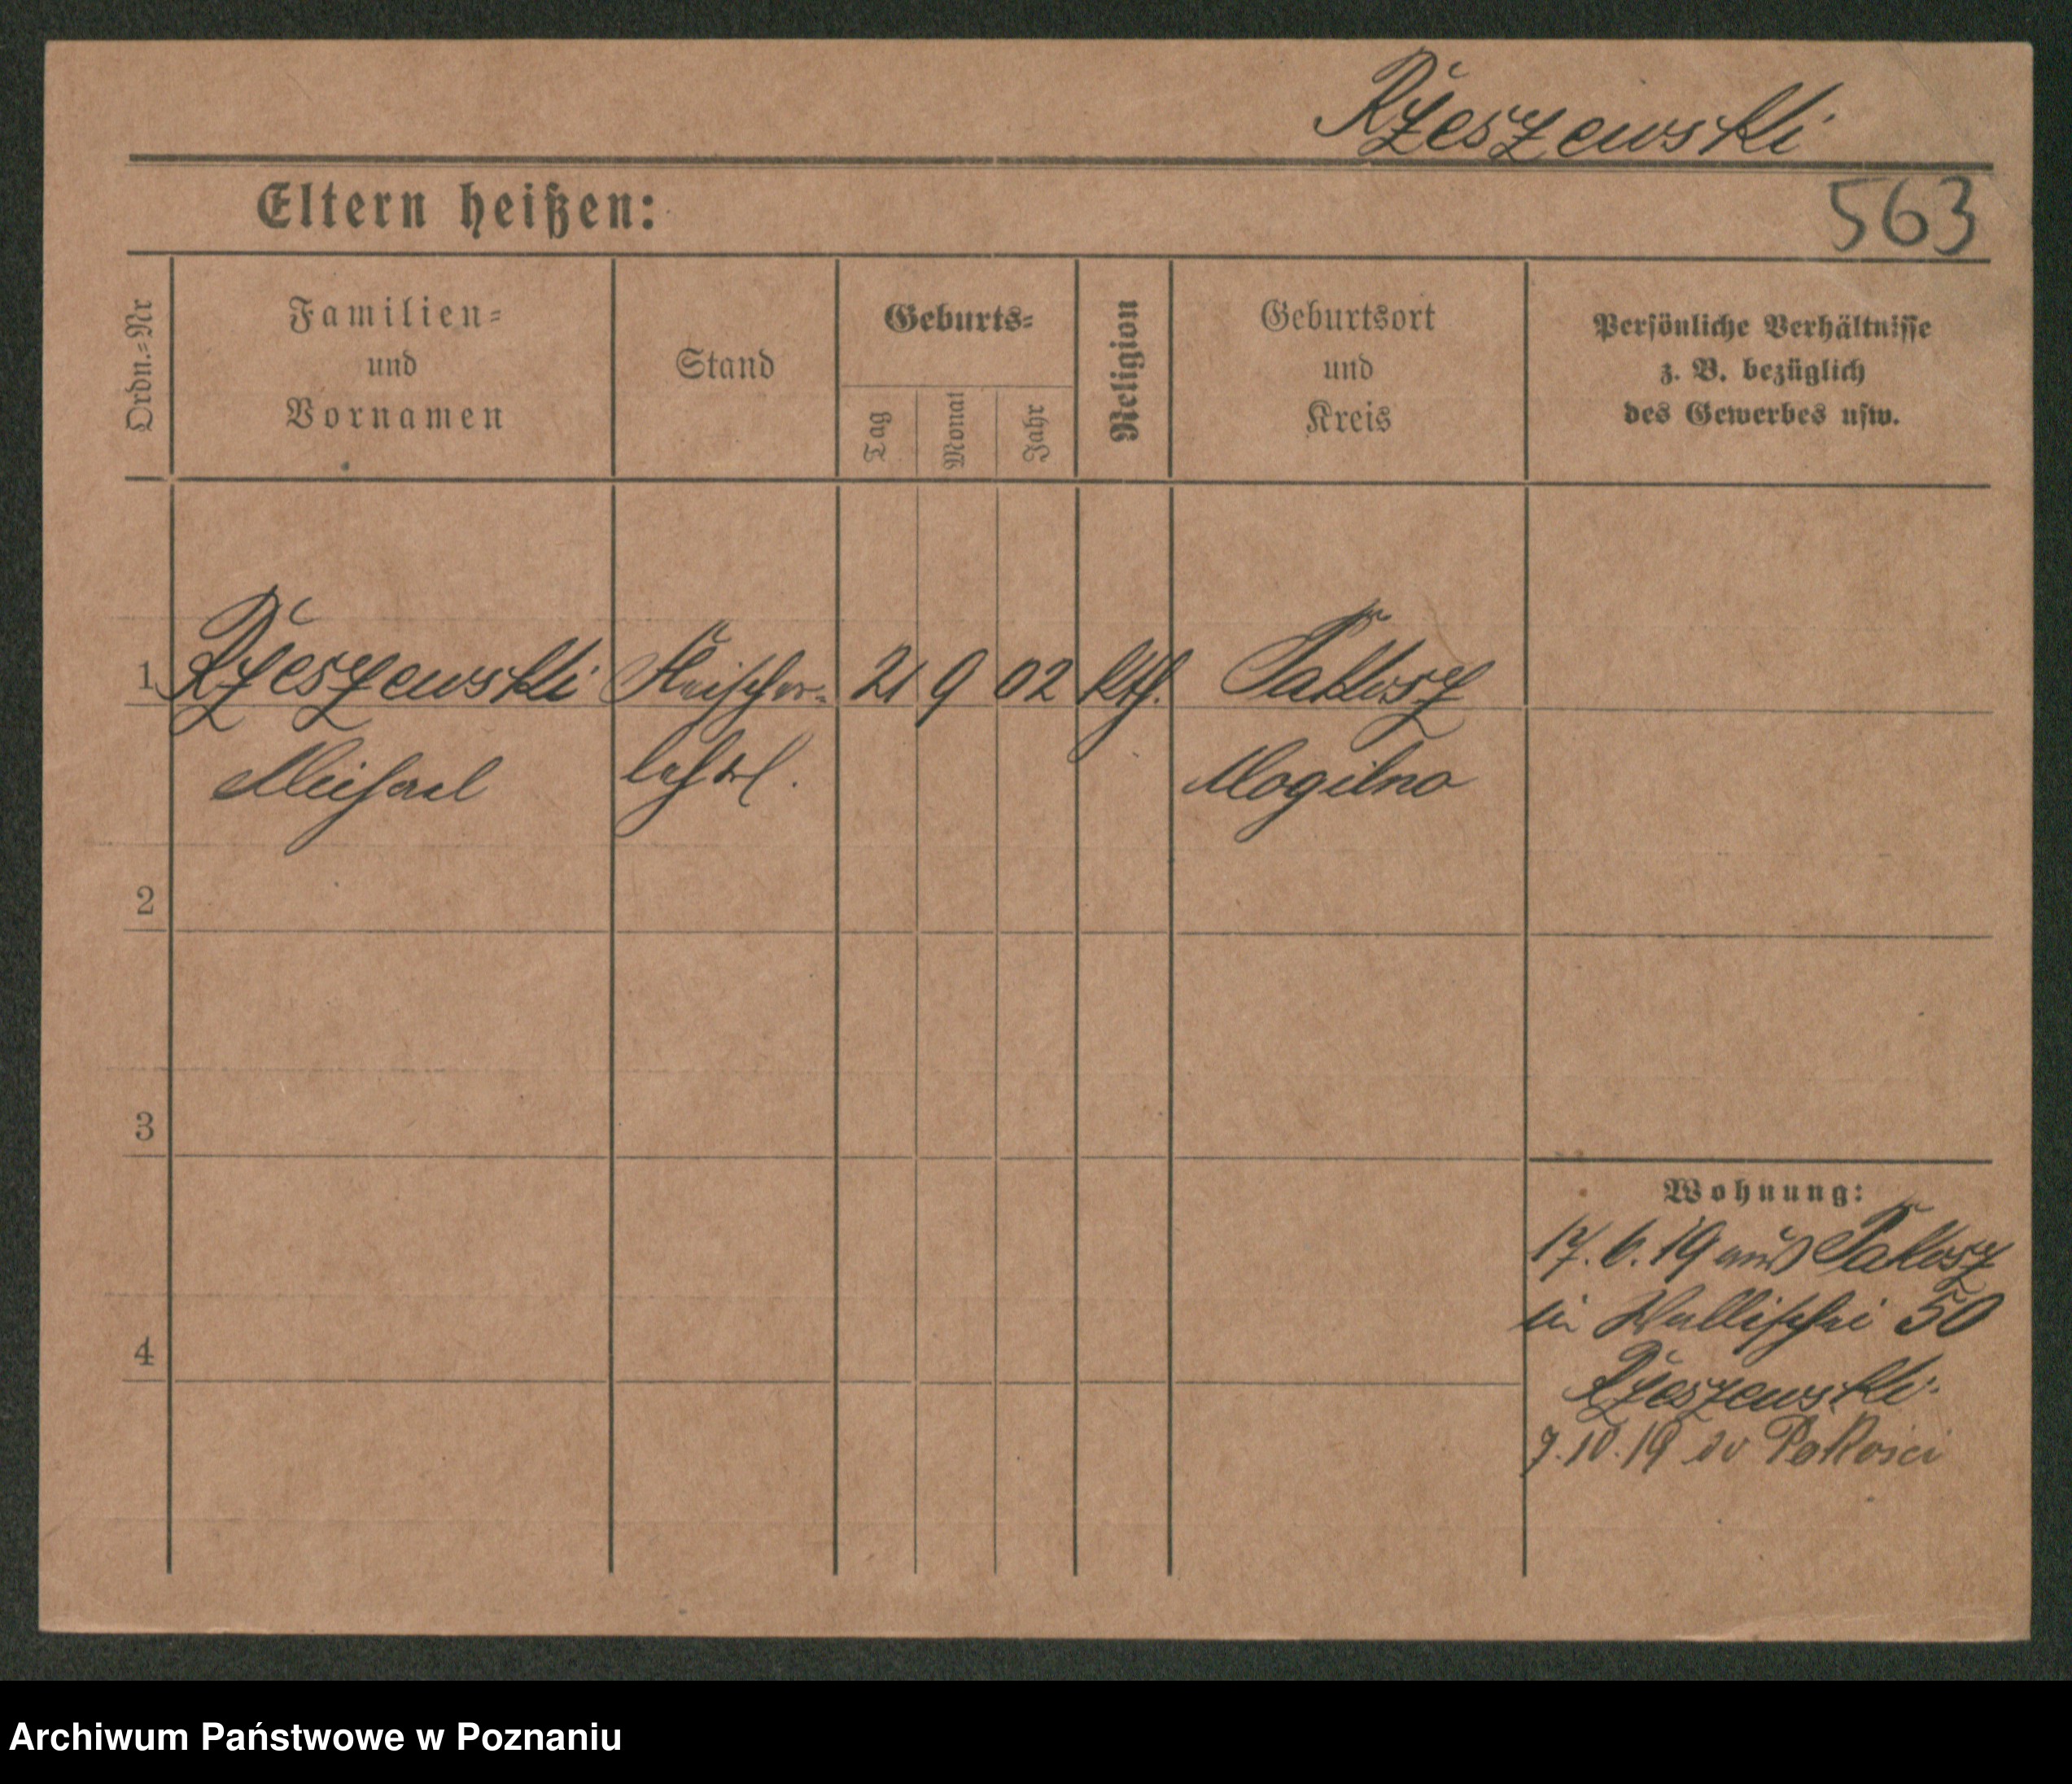 Rzeszewski
Eltern heißen:
563
Ordn.=Nr
Familien=
und
Vornamen
Stand
Geburts=
Tag
Monat
Jahr
Religion
Geburtsort
und
Kreis
Persönliche Verhältnisse
z. B. bezüglich
des Gewerbes usw.
1 Rzeszewski Fleischer= 21 9 02 kth. Pakosz
Michael lehrl. Mogilno
2
3
4
Wohnung:
17.6.19 aus Pakosz
in Wallischei 50
Rzeszewski.
7.10.19 do Pakości
Archiwum Państwowe w Poznaniu